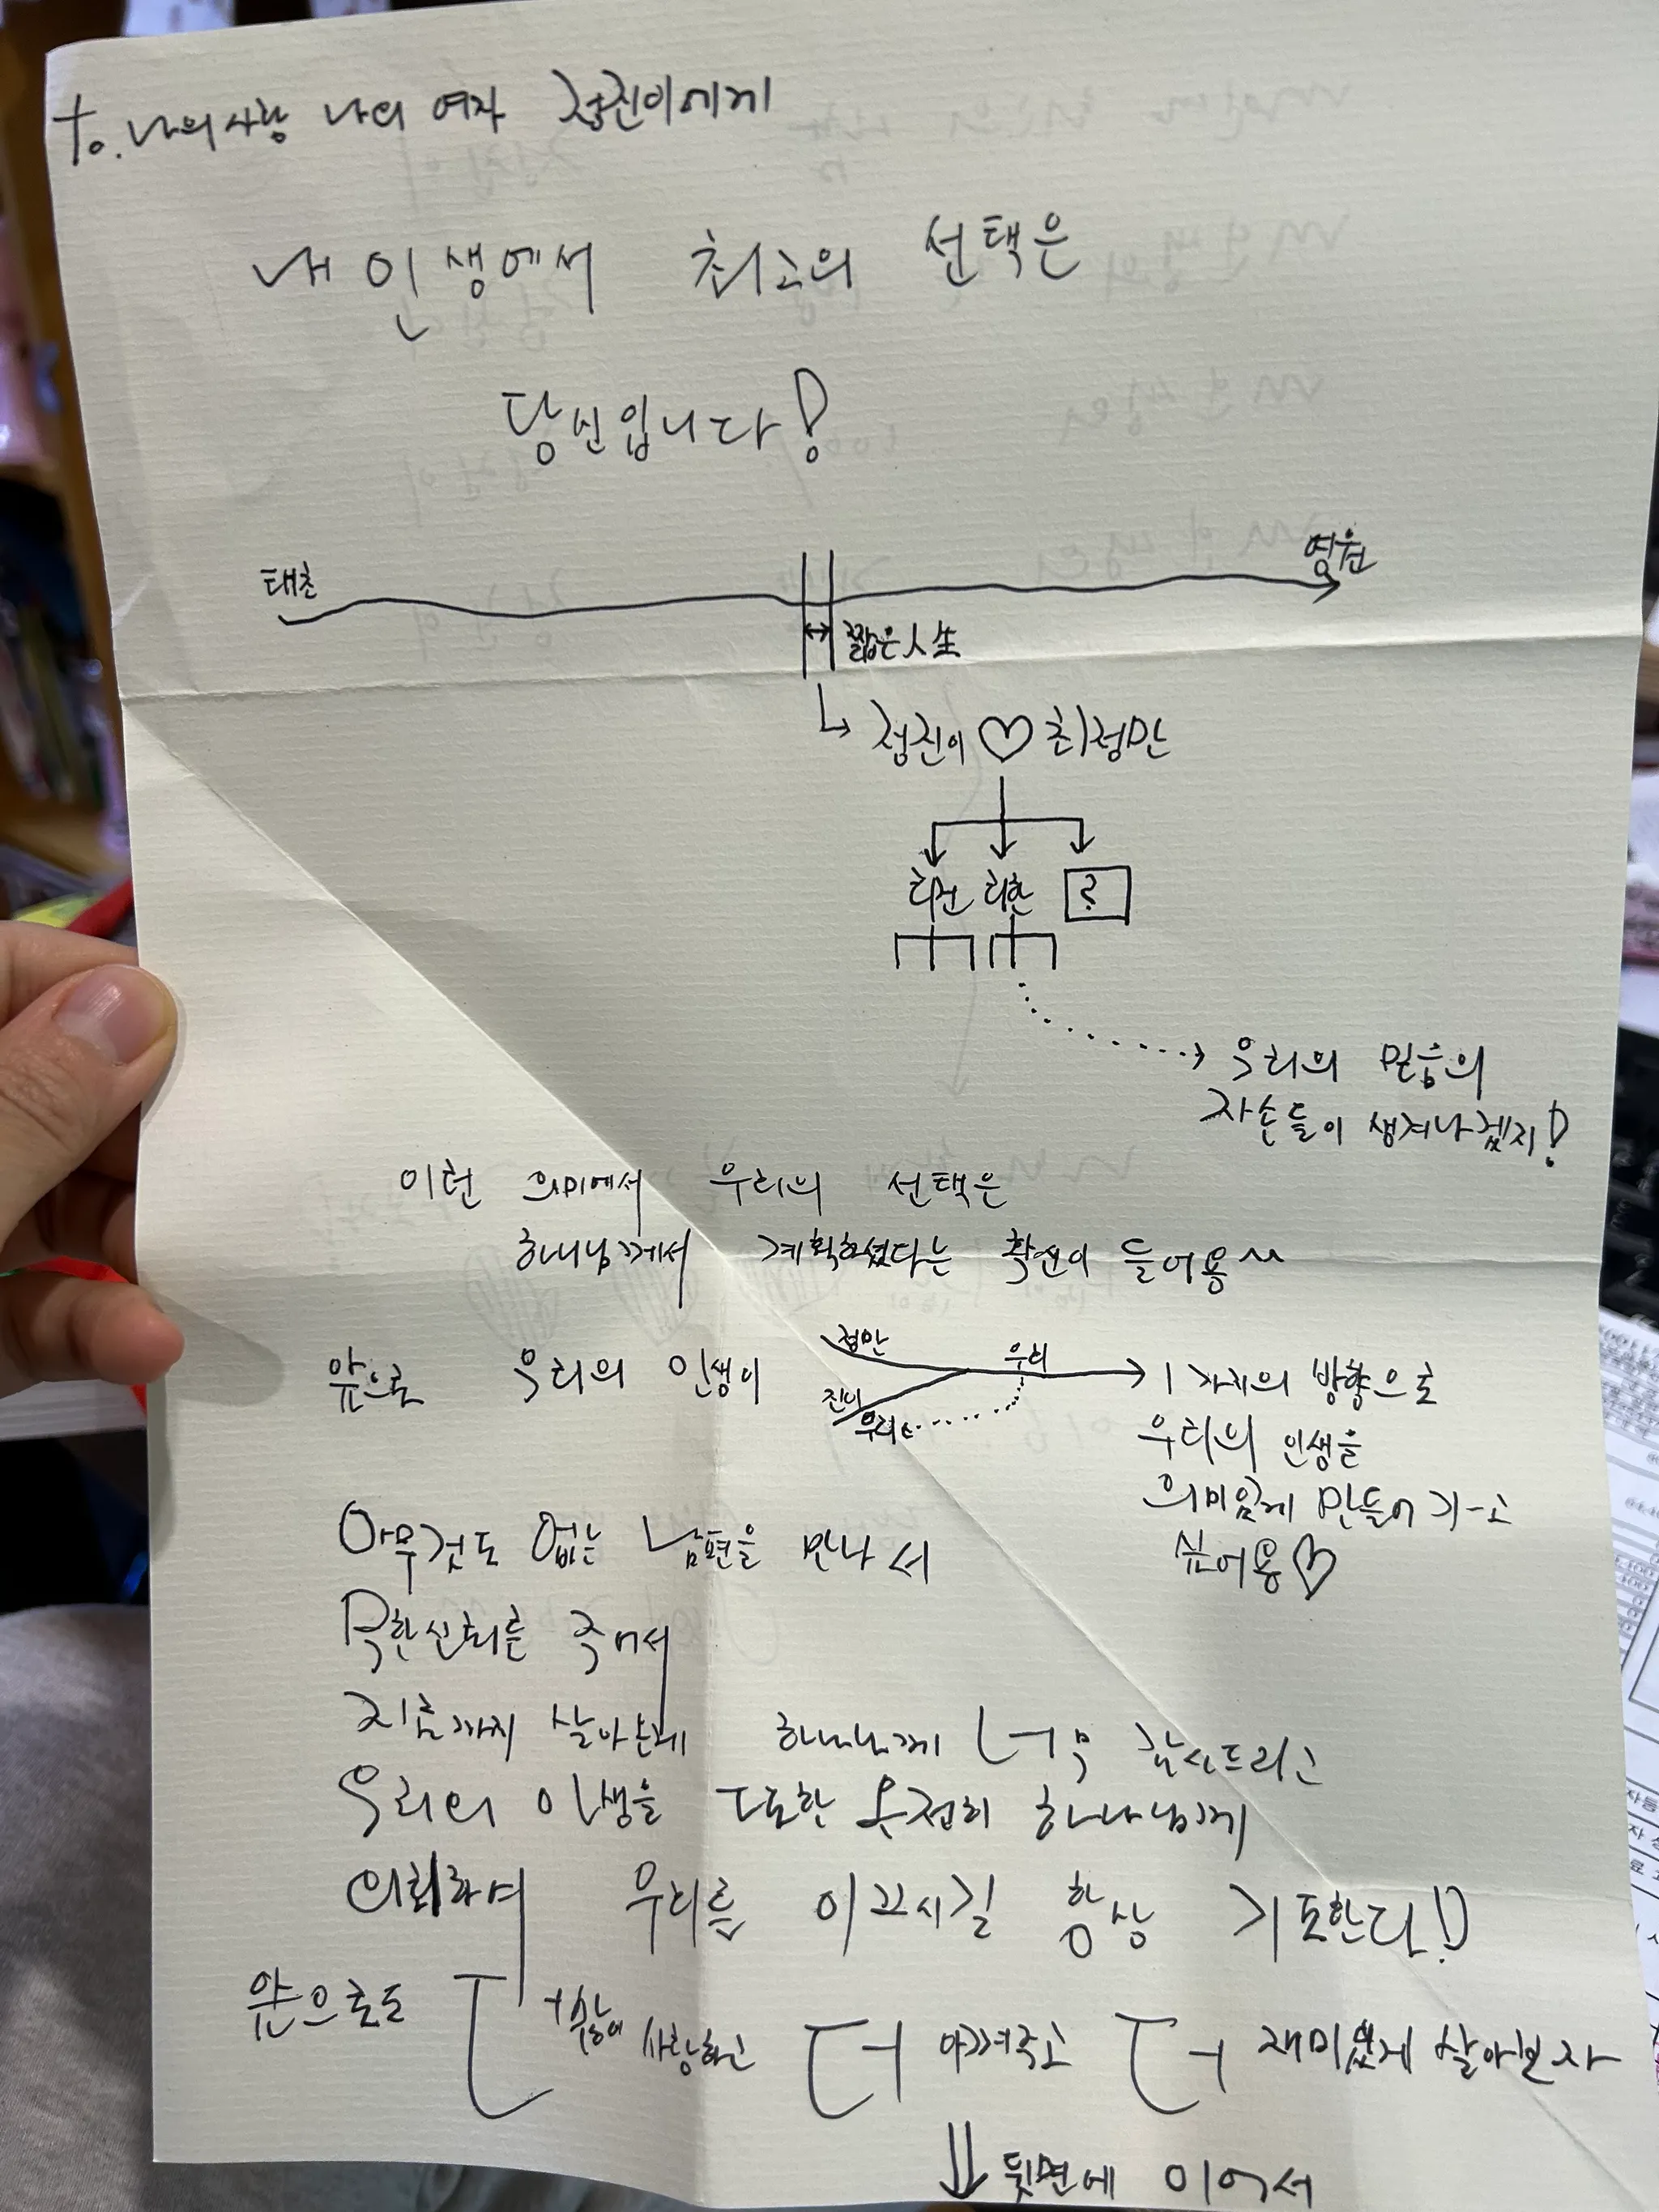 to. 나의 사랑 나의 여자 정진이에게
내 인생에서 최고의 선택은
당신입니다!
태초
영원
짧은 人生
정진이 ♡ 최정만
최건 최한 ?
우리의 믿음의
자손들이 생겨나겠지!
이런 의미에서 우리의 선택은
하나님께서 계획하셨다는 확신이 들어용^^
앞으로 우리의 인생이
정만
진이
우리
우리
1가지의 방향으로
우리의 인생을
의미있게 만들어 가고
싶어용♡
아무것도 없는 남편을 만나서
무한신뢰를 주어서
지금까지 살아온게 하나님께 너무 감사드리고
우리의 인생을 또한 온전히 하나님께
의뢰하며 우리를 이끄시길 항상 기도한다!
앞으로도 더 사랑하고 더 아껴주고 더 재미있게 살아보자
뒷면에 이어서